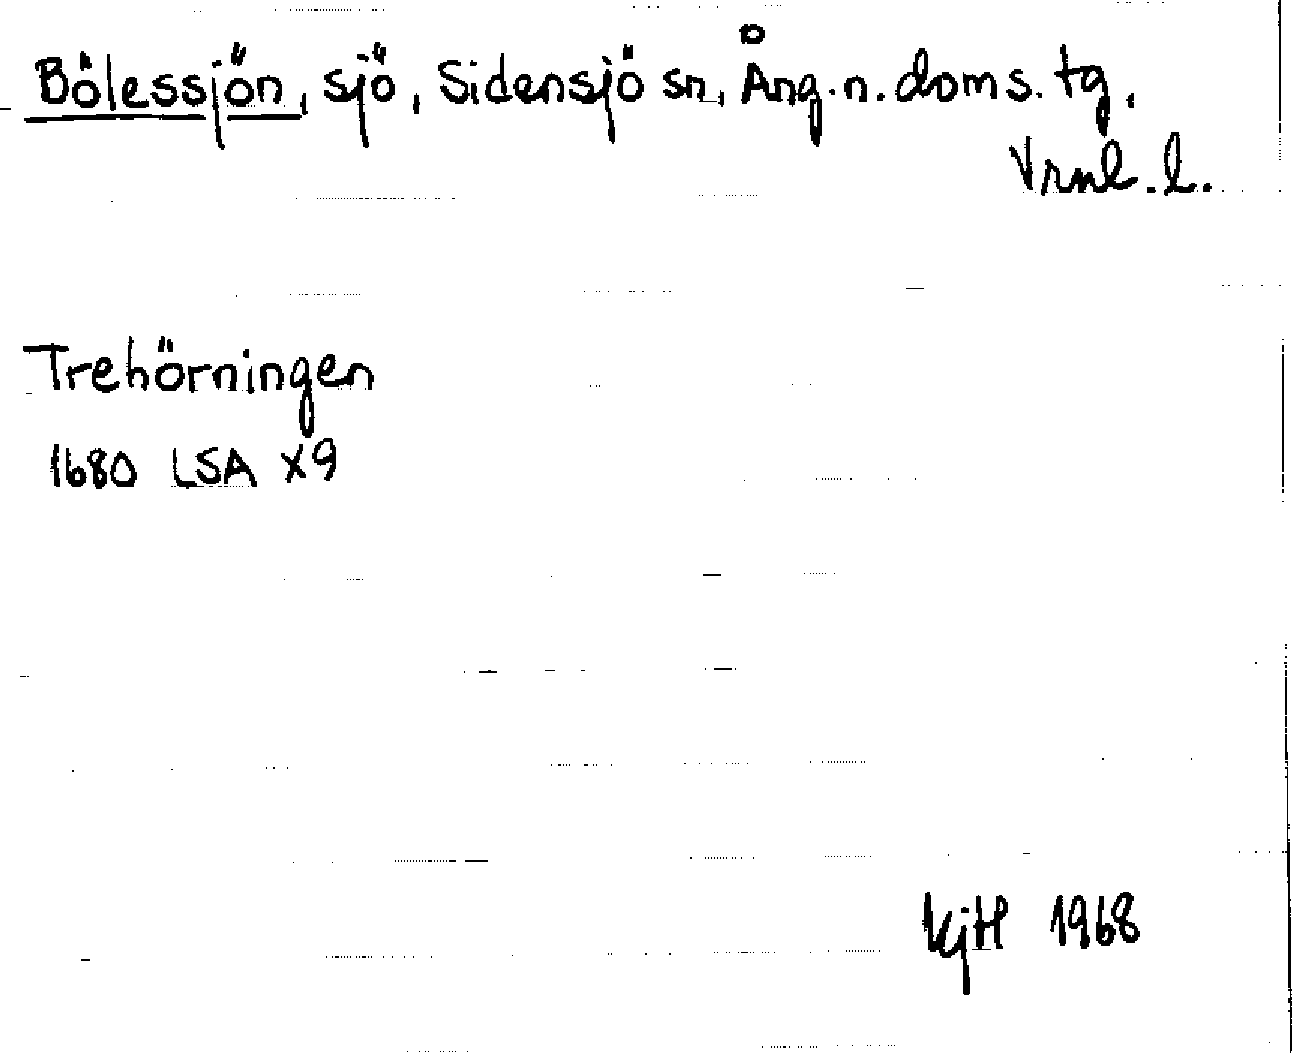 Bölessjön, sjö, Sidensjö sn, Ång.n.doms.tg.
Vrnl.l.
Trehörningen
1680 LSA X9
KjH 1968